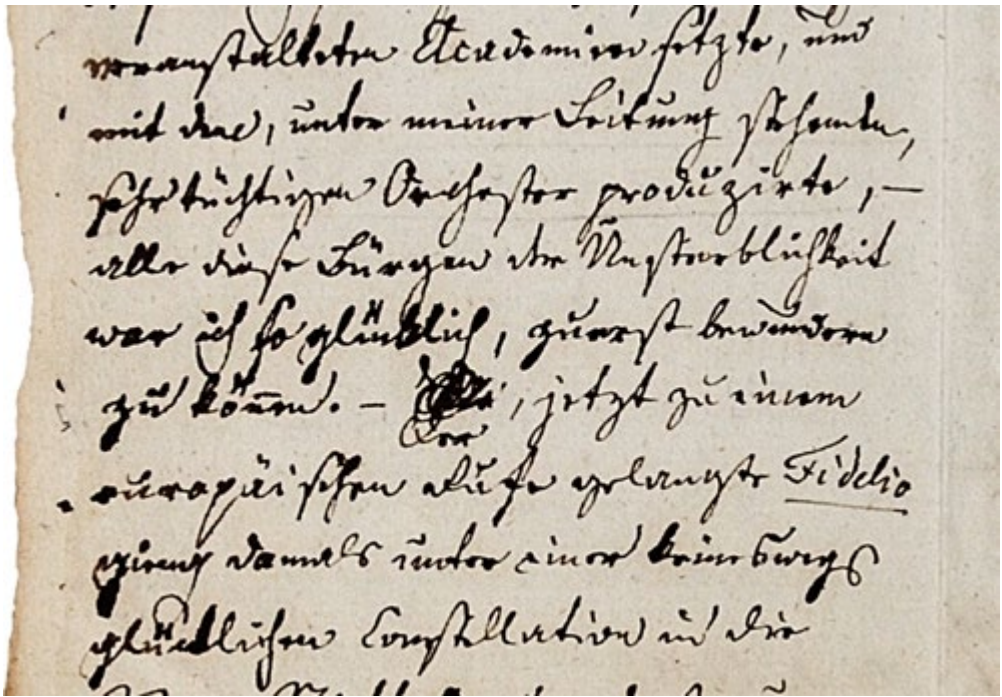 veranstalteten Academien setzte, und
mit dem, unter meiner Leitung stehenden,
sehr tüchtigen Orchester produzirte, –
alle diese Bürgen der Unsterblichkeit
war ich so glücklich, zuerst bewundern
zu können. – Der, jetzt zu einem
europäischen Rufe gelangte Fidelio
gieng damals unter einer keineswegs
glücklichen Constellation in die